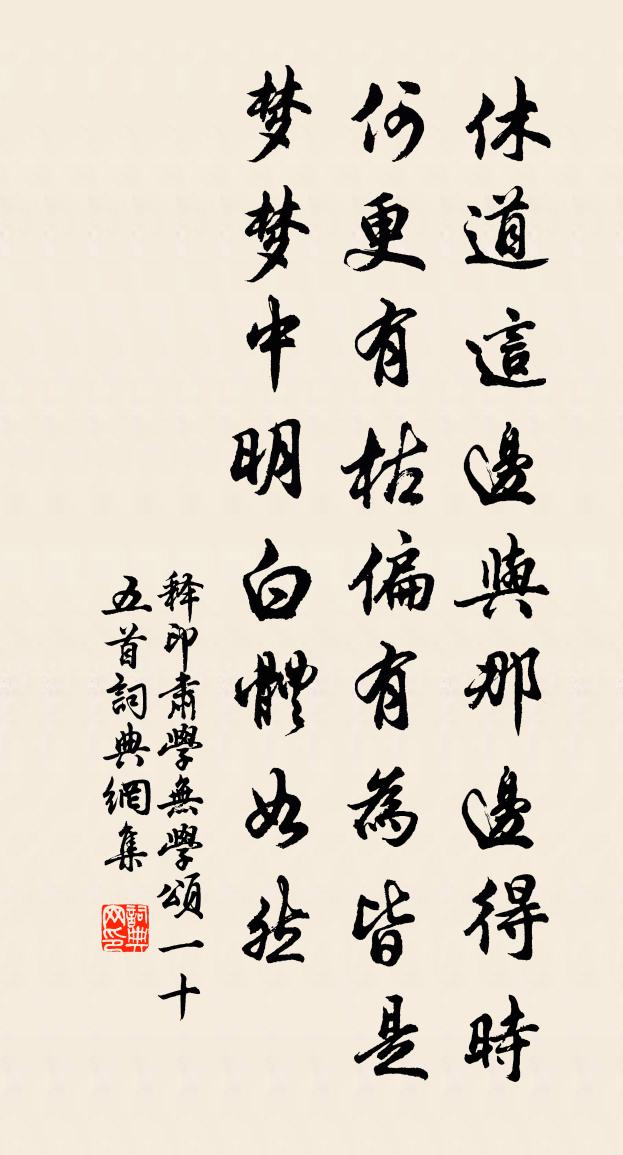 休道這邊與那邊得時
何更有枯偏有為皆是
梦梦中明白體如然
释印肃學無學頌一十
五首詞典網集
詞典网印